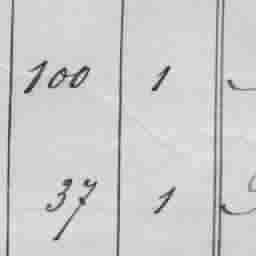 100 1
37 1